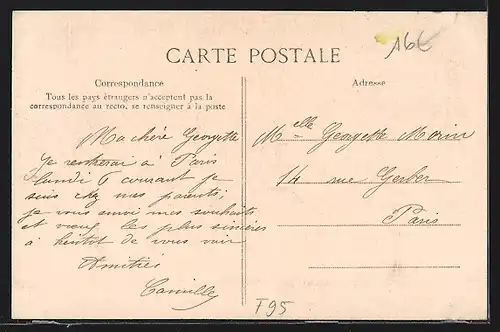 16€
CARTE POSTALE
Correspondance
Tous les pays étrangers n'acceptent pas la
correspondance au recto, se renseigner à la poste
Ma chère Georgette
Je rentrerai à Paris
lundi 6 courant je
suis chez mes parents,
je vous envoi mes souhaits
et vœux les plus sincères
à bientot de vous voir
Amitiés
Camille
Adresse
Melle Georgette Morin
14 rue Gerber
Paris
T95